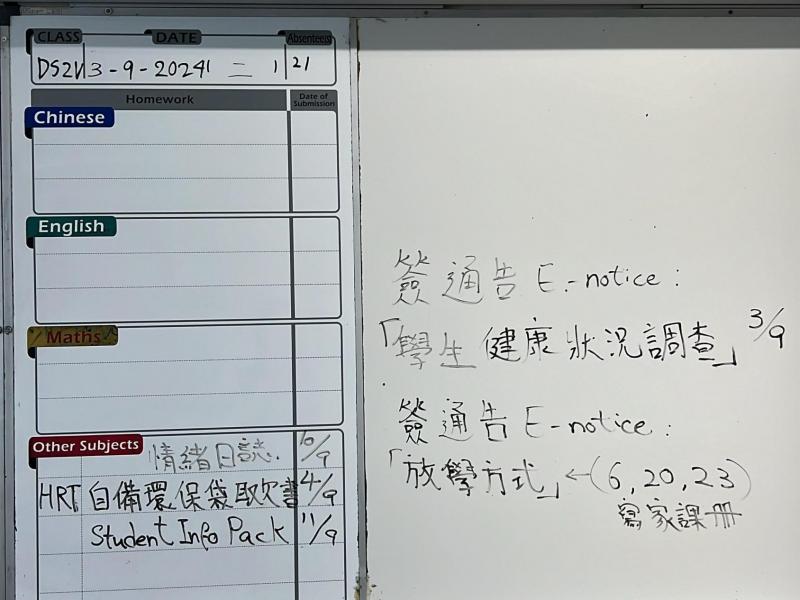 CLASS DATE Absentees
3-9-2024 二 1 21
Homework Date of Submission
Chinese
English
Maths
Other Subjects
情緒日誌. 10/9
HRT 自備環保袋取欠書 4/9
Student Info Pack 11/9
簽通告 E-notice:
「學生健康狀況調查」 3/9
簽通告 E-notice:
「放學方式」←(6,20,23)
寫家課冊